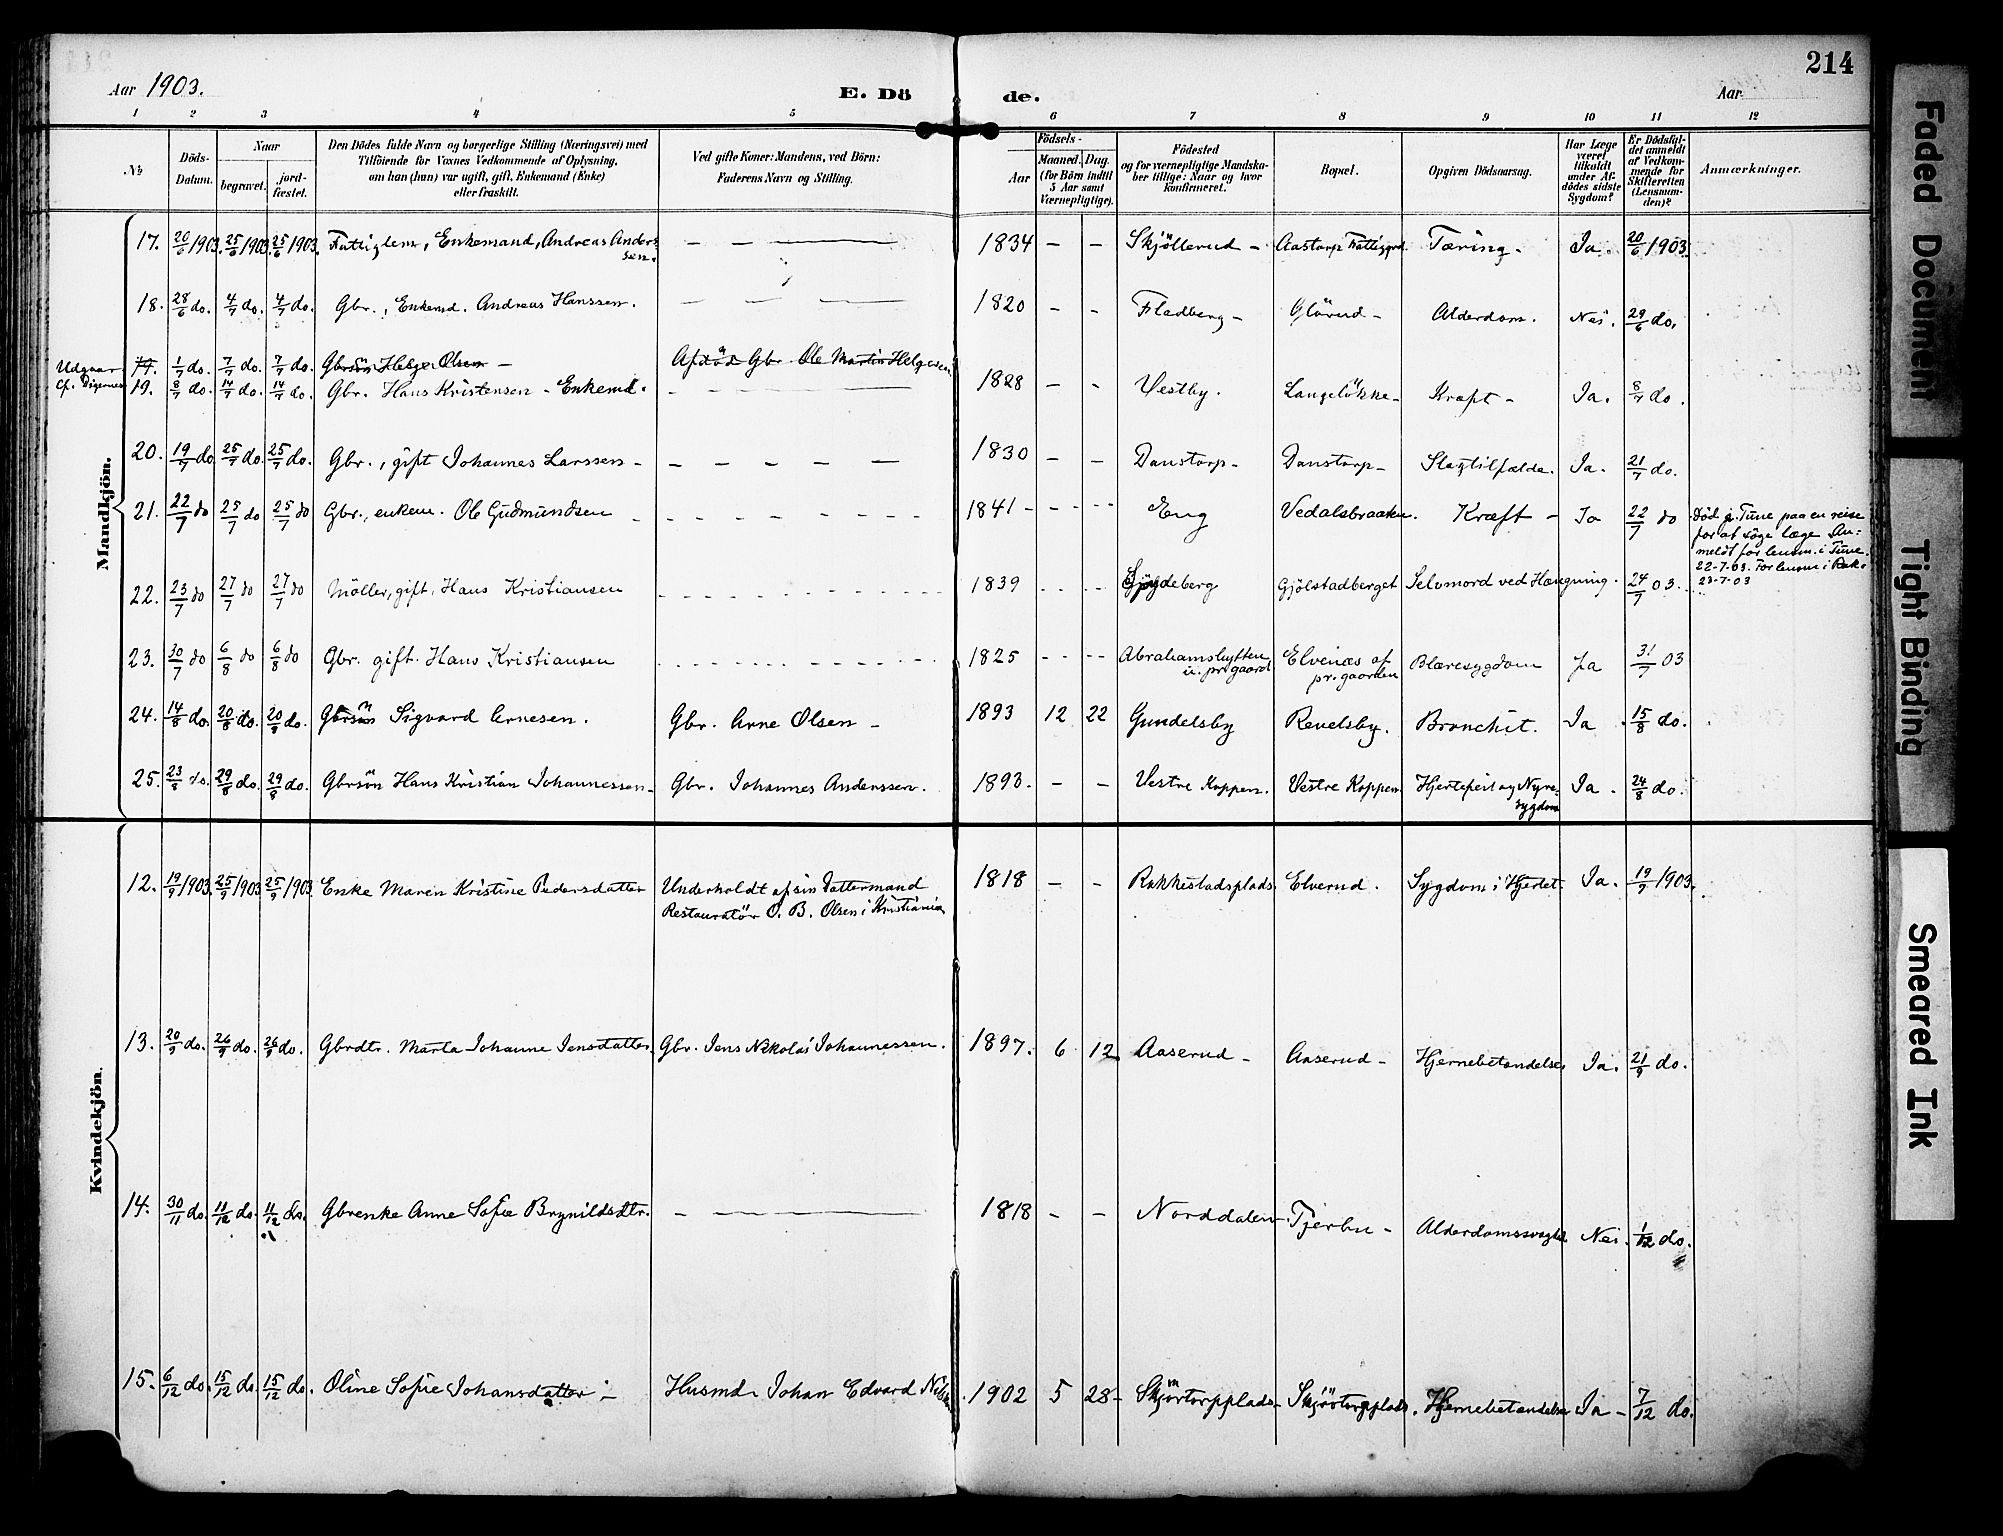 214
Aar 1903.
E. Döde.
Aar
1 2 3 4 5 6 7 8 9 10 11 12
№
Döds-Datum.
Naar
begravet.
jord-fæstet.
Den Dödes fulde Navn og borgerlige Stilling (Næringsvei) med
Tilföiende for Voxnes Vedkommende af Oplysning,
om han (hun) var ugift, gift, Enkemand (Enke)
eller fraskilt.
Ved gifte Koner: Mandens, ved Börn:
Faderens Navn og Stilling.
Födsels-
Aar
Maaned. Dag.
(for Börn indtil
5 Aar samt
Værnepligtige).
Födested
og for værnepligtige Mandska-
ber tillige: Naar og hvor
konfirmeret.
Bopæl.
Opgiven Dödsaarsag.
Har Læge
været
tilkaldt
under Af-
dödes sidste
Sygdom?
Er Dödsfal-
det anmeldt
af Vedkom-
mende for
Skifteretten
(Lensman-
den)?
Anmærkninger.
Mandkjön.
17. 20/6 1903. 25/6 1903. 25/6 1903. Fattiglem, Enkemand, Andreas Anders- — — — 1834 — — Skjöllerud — Aastorp Fattiggrd. Tæring. Ja. 20/6 1903.
sen.
18. 28/6 do. 4/7 do. 4/7 do. Gbr., Enkemd. Andreas Hanssen. — — — 1820 — — Fladberg — Glörud — Alderdom. Nei. 29/6 do.
Udgaar 19. 1/7 do. 7/7 do. 7/7 do. Gbrsön Helge Olsen — Afdöd Gbr Ole Martin Helgesen
cf. Digernes 19. 8/7 do. 14/7 do. 14/7 do. Gbr. Hans Kristensen — Enkemd. — — — 1828 — — Vestby. Langelökke — Kræft — Ja. 8/7 do.
20. 19/7 do. 25/7 do. 25/7 do. Gbr., gift Johannes Larssen — — — — — 1830 — — Danstorp — Danstorp — Slagtilfælde. Ja. 21/7 do.
21. 22/7 do 25/7 do 25/7 do Gbr., enkem. Ole Gudmundsen - - - - 1841 - - - Eng Vedalsbraaten. Kræft — Ja 22/7 do Död i Tune paa en reise
for at söge læge An-
meldt for lensm. i Tune.
22-7-03. For lensm i Rak.
23-7-03
22. 23/7 do 27/7 do 27/7 do Möller, gift, Hans Kristiansen - - - - 1839 - - - Spydeberg Gjölstadberget Selvmord ved Hængning. 24/7 03.
23. 30/7 do 6/8 do 6/8 do Gbr. gift. Hans Kristiansen - - - - 1825 - - - Abrahamshytten Elvenæs af Blæresygdom Ja 31/7 03
u. pr.gaard pr. gaarden
24. 14/8 do. 20/8 do. 20/8 do. Gbrsön Sigvard Arnesen. Gbr. Arne Olsen — 1893 12 22 Gundelsby Revelsby. Bronchit. Ja 15/8 do.
25. 23/8 do. 29/8 do. 29/8 do. Gbrsön Hans Kristian Johannessen — Gbr. Johannes Anderssen. 1893. — — Vestre Koppen. Vestre Koppen Hjertefeil og Nyre- Ja. 24/8 do.
sygdom
Kvindekjön.
12. 19/9 1903. 25/9 1903 25/9 1903 Enke Maren Kristine Pedersdatter Underholdt af sin Dattermand 1818 — — Rakkestadsplads Elverud. Sygdom i Hjertet. Ja. 19/9 1903.
Restauratör O. B. Olsen i Kristiania
13. 20/9 do. 26/9 do. 26/9 do. Gbrdtr. Marta Johanne Jensdatter. Gbr. Jens Nikolai Johannessen. 1897. 6 12 Aaserud — Aaserud — Hjernebetændelse. Ja. 21/9 do.
14. 30/11 do. 11/12 do. 11/12 do. Gbrenke Anne Sofie Brynildsdtr. — — 1818 — — Norddalen — Tjerbu — Alderdomssvaghed Nei. 1/12 do.
15. 6/12 do. 15/12 do. 15/12 do. Oline Sofie Johansdatter — Husmd. Johan Edvard Nilsen. 1902 5 28 — Skjörtorpplads — Skjörtorpplads. Hjernebetændelse Ja — 7/12 do.
Faded Document
Tight Binding
Smeared Ink